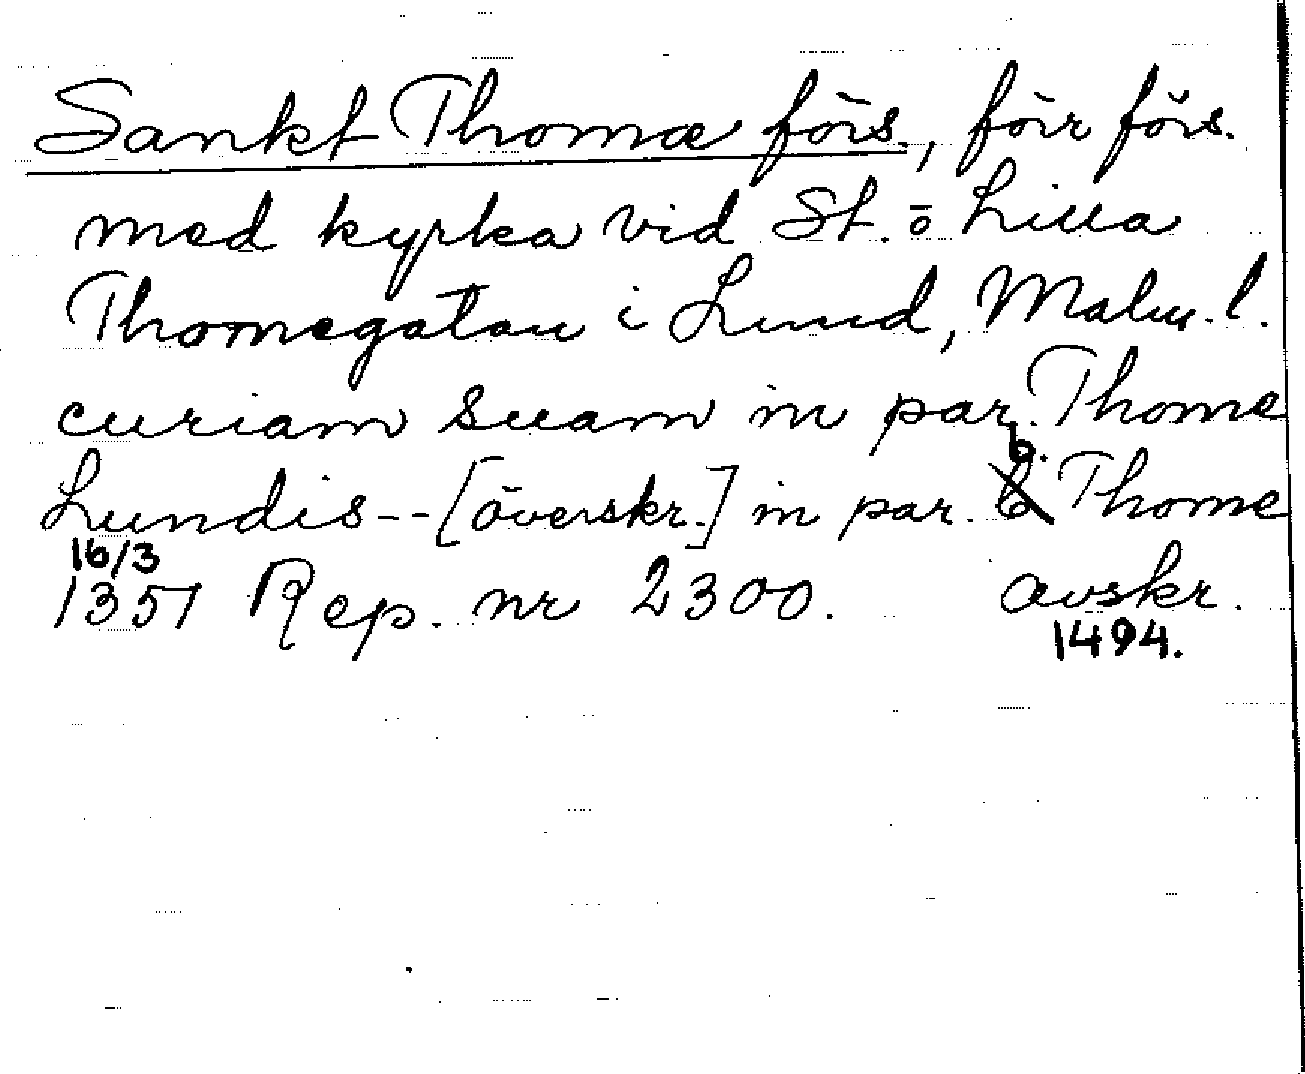 Sankt Thomæ förs., förr förs.
med kyrka vid St. o Lilla
Thomegatan i Lund, Malm. l.
curiam suam in par. Thome
Lundis -- [överskr.] in par. b. Thome
16/3
1351 Rep. nr 2300. avskr.
1494.